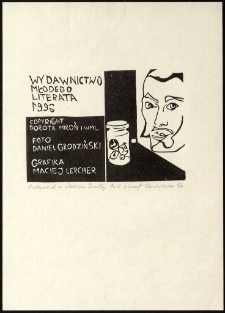 WYDAWNICTWO
MŁODEGO
LITERATA
1996
COPYRIGHT
DOROTA MROŃ I WML
FOTO
DANIEL GRODZIŃSKI
GRAFIKA
MACIEJ LERCHER